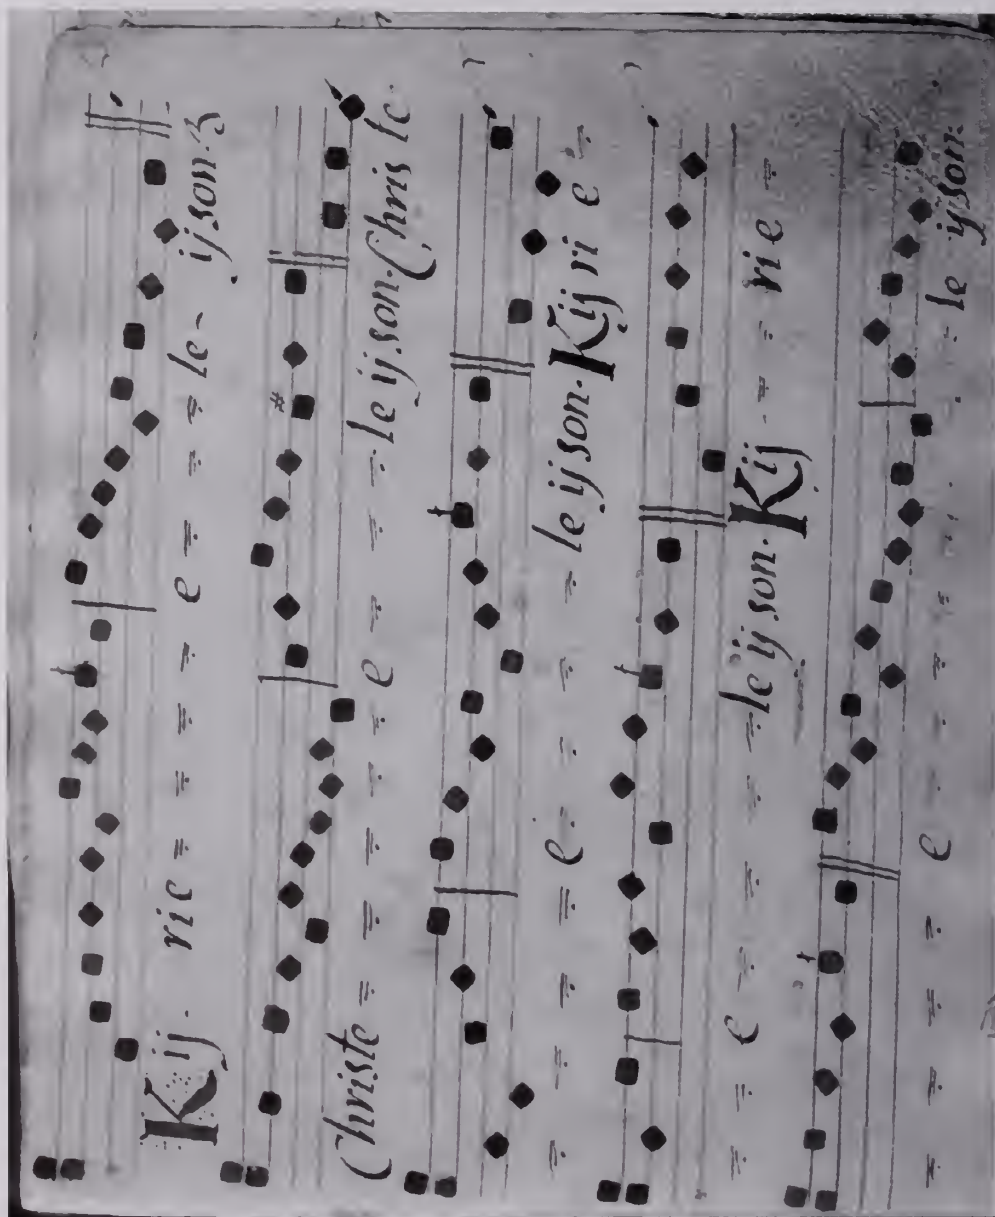 Kij - rie = = = = e = = = le - ijson. 3
Christe = = = = = e = = = le ijson. Christe
= = = = e = = = le ijson. Kij ri e =
= = e = = = = le ijson. Kij - = = rie =
= = = = = e = = = = = = = - le ijson.